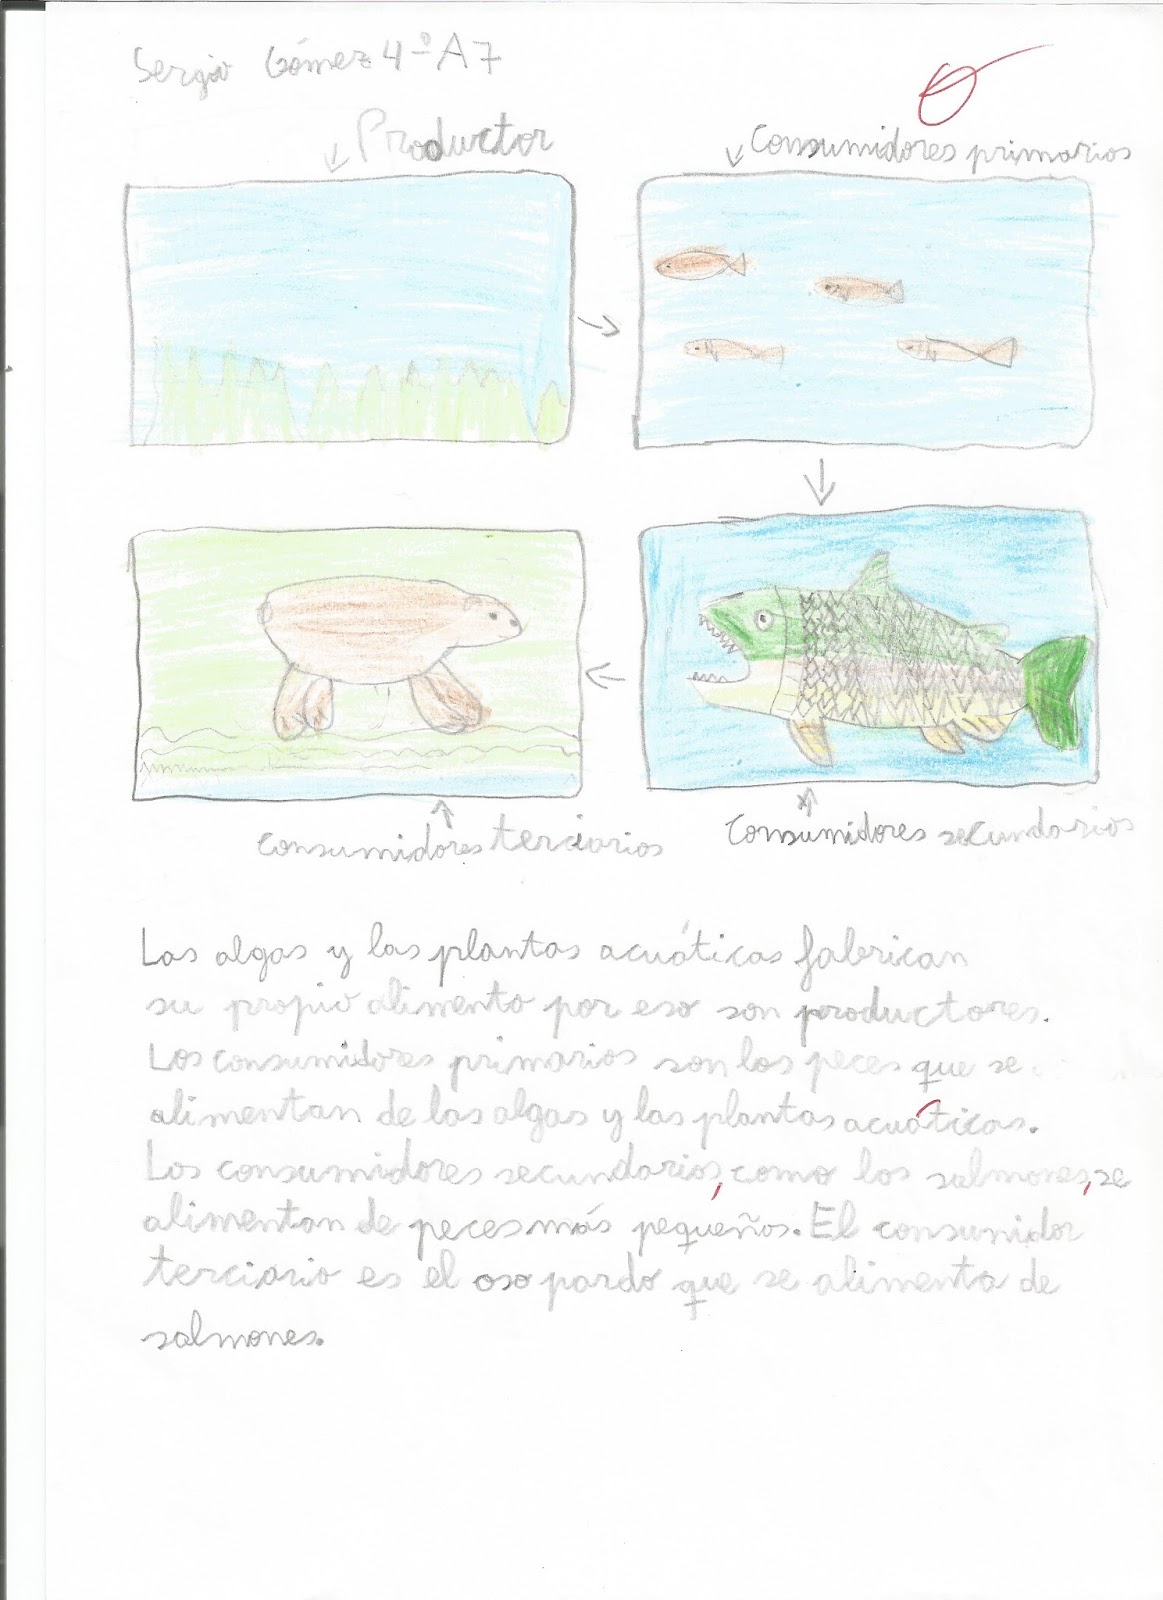 Sergio Gómez 4º A 7
Productor
Consumidores primarios
consumidores terciarios
Consumidores secundarios
Las algas y las plantas acuáticas fabrican
su propio alimento por eso son productores.
Los consumidores primarios son los peces que se
alimentan de las algas y las plantas acuáticas.
Los consumidores secundarios, como los salmones, se
alimentan de peces más pequeños. El consumidor
terciario es el oso pardo que se alimenta de
salmones.